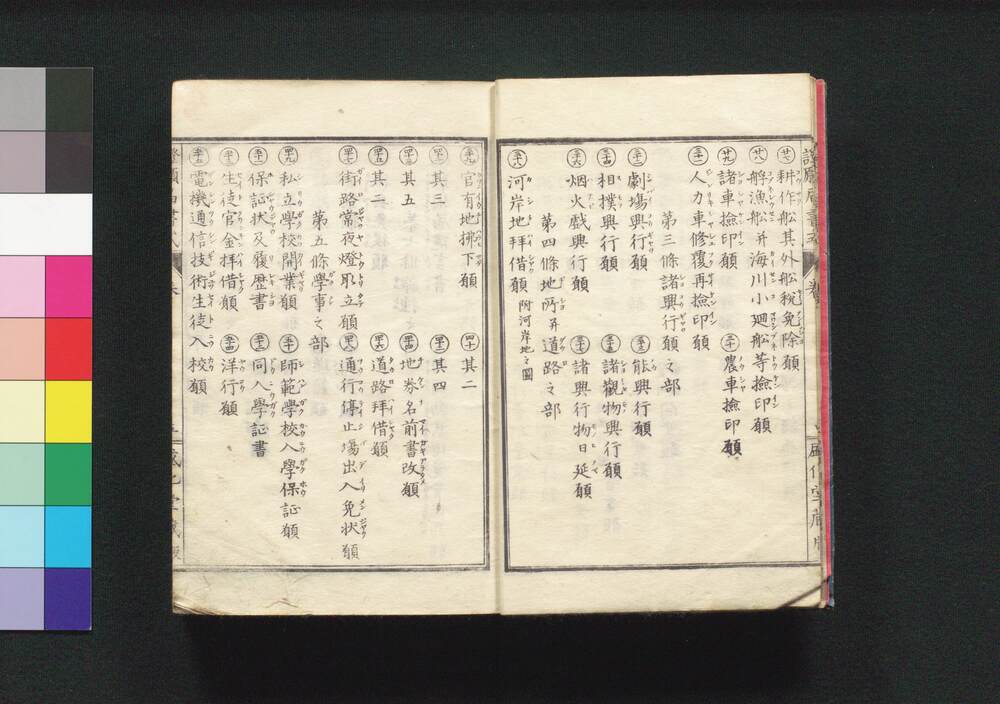 ㊁七 耕作舩其外舩税免除願
廿八 艀漁舩并海川小廻舩等撿印願
廿九 諸車撿印願 三十 農車撿印願
三十一 人力車修覆再撿印願
第三條諸興行願之部
三十二 劇場興行願 三十三 能興行願
三十四 相撲興行願 三十五 諸觀物興行願
三十六 烟火戯興行願 三十七 諸興行物日延願
第四條地所并道路之部
三十八 河岸地拜借願 附河岸地之圖
三十九 官有地拂下願 四十 其二
四十一 其三 四十二 其四
四十三 其五 四十四 地券名前書改願
四十五 其二 四十六 道路拜借願
四十七 街路常夜燈取立願 四十八 通行停止場出入免状願
第五條學事之部
四十九 私立學校開業願 五十 師範學校入學保証願
五十一 保証状及履歴書 五十二 同入學証書
五十三 生徒官金拜借願 五十四 洋行願
五十五 電機通信技術生徒入校願